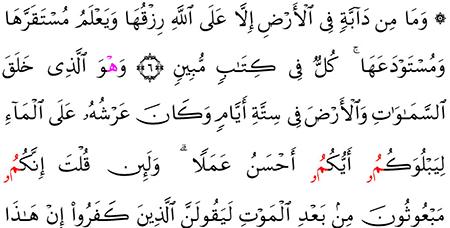 ۞ وَمَا مِن دَآبَّةٍ فِى ٱلْأَرْضِ إِلَّا عَلَى ٱللَّهِ رِزْقُهَا وَيَعْلَمُ مُسْتَقَرَّهَا
وَمُسْتَوْدَعَهَا ۚ كُلٌّ فِى كِتَـٰبٍ مُّبِينٍ ﴿٦﴾ وَهْوَ ٱلَّذِى خَلَقَ
ٱلسَّمَـٰوَٰتِ وَٱلْأَرْضَ فِى سِتَّةِ أَيَّامٍ وَكَانَ عَرْشُهُۥ عَلَى ٱلْمَآءِ
لِيَبْلُوَكُمُۥ أَيُّكُمُۥ أَحْسَنُ عَمَلًا ۗ وَلَئِن قُلْتَ إِنَّكُمُۥ
مَبْعُوثُونَ مِنۢ بَعْدِ ٱلْمَوْتِ لَيَقُولَنَّ ٱلَّذِينَ كَفَرُوٓا۟ إِنْ هَـٰذَآ